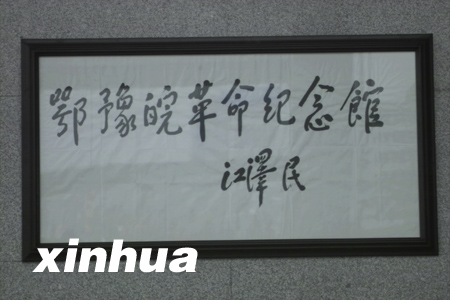 鄂豫皖革命纪念馆
江泽民
xinhua